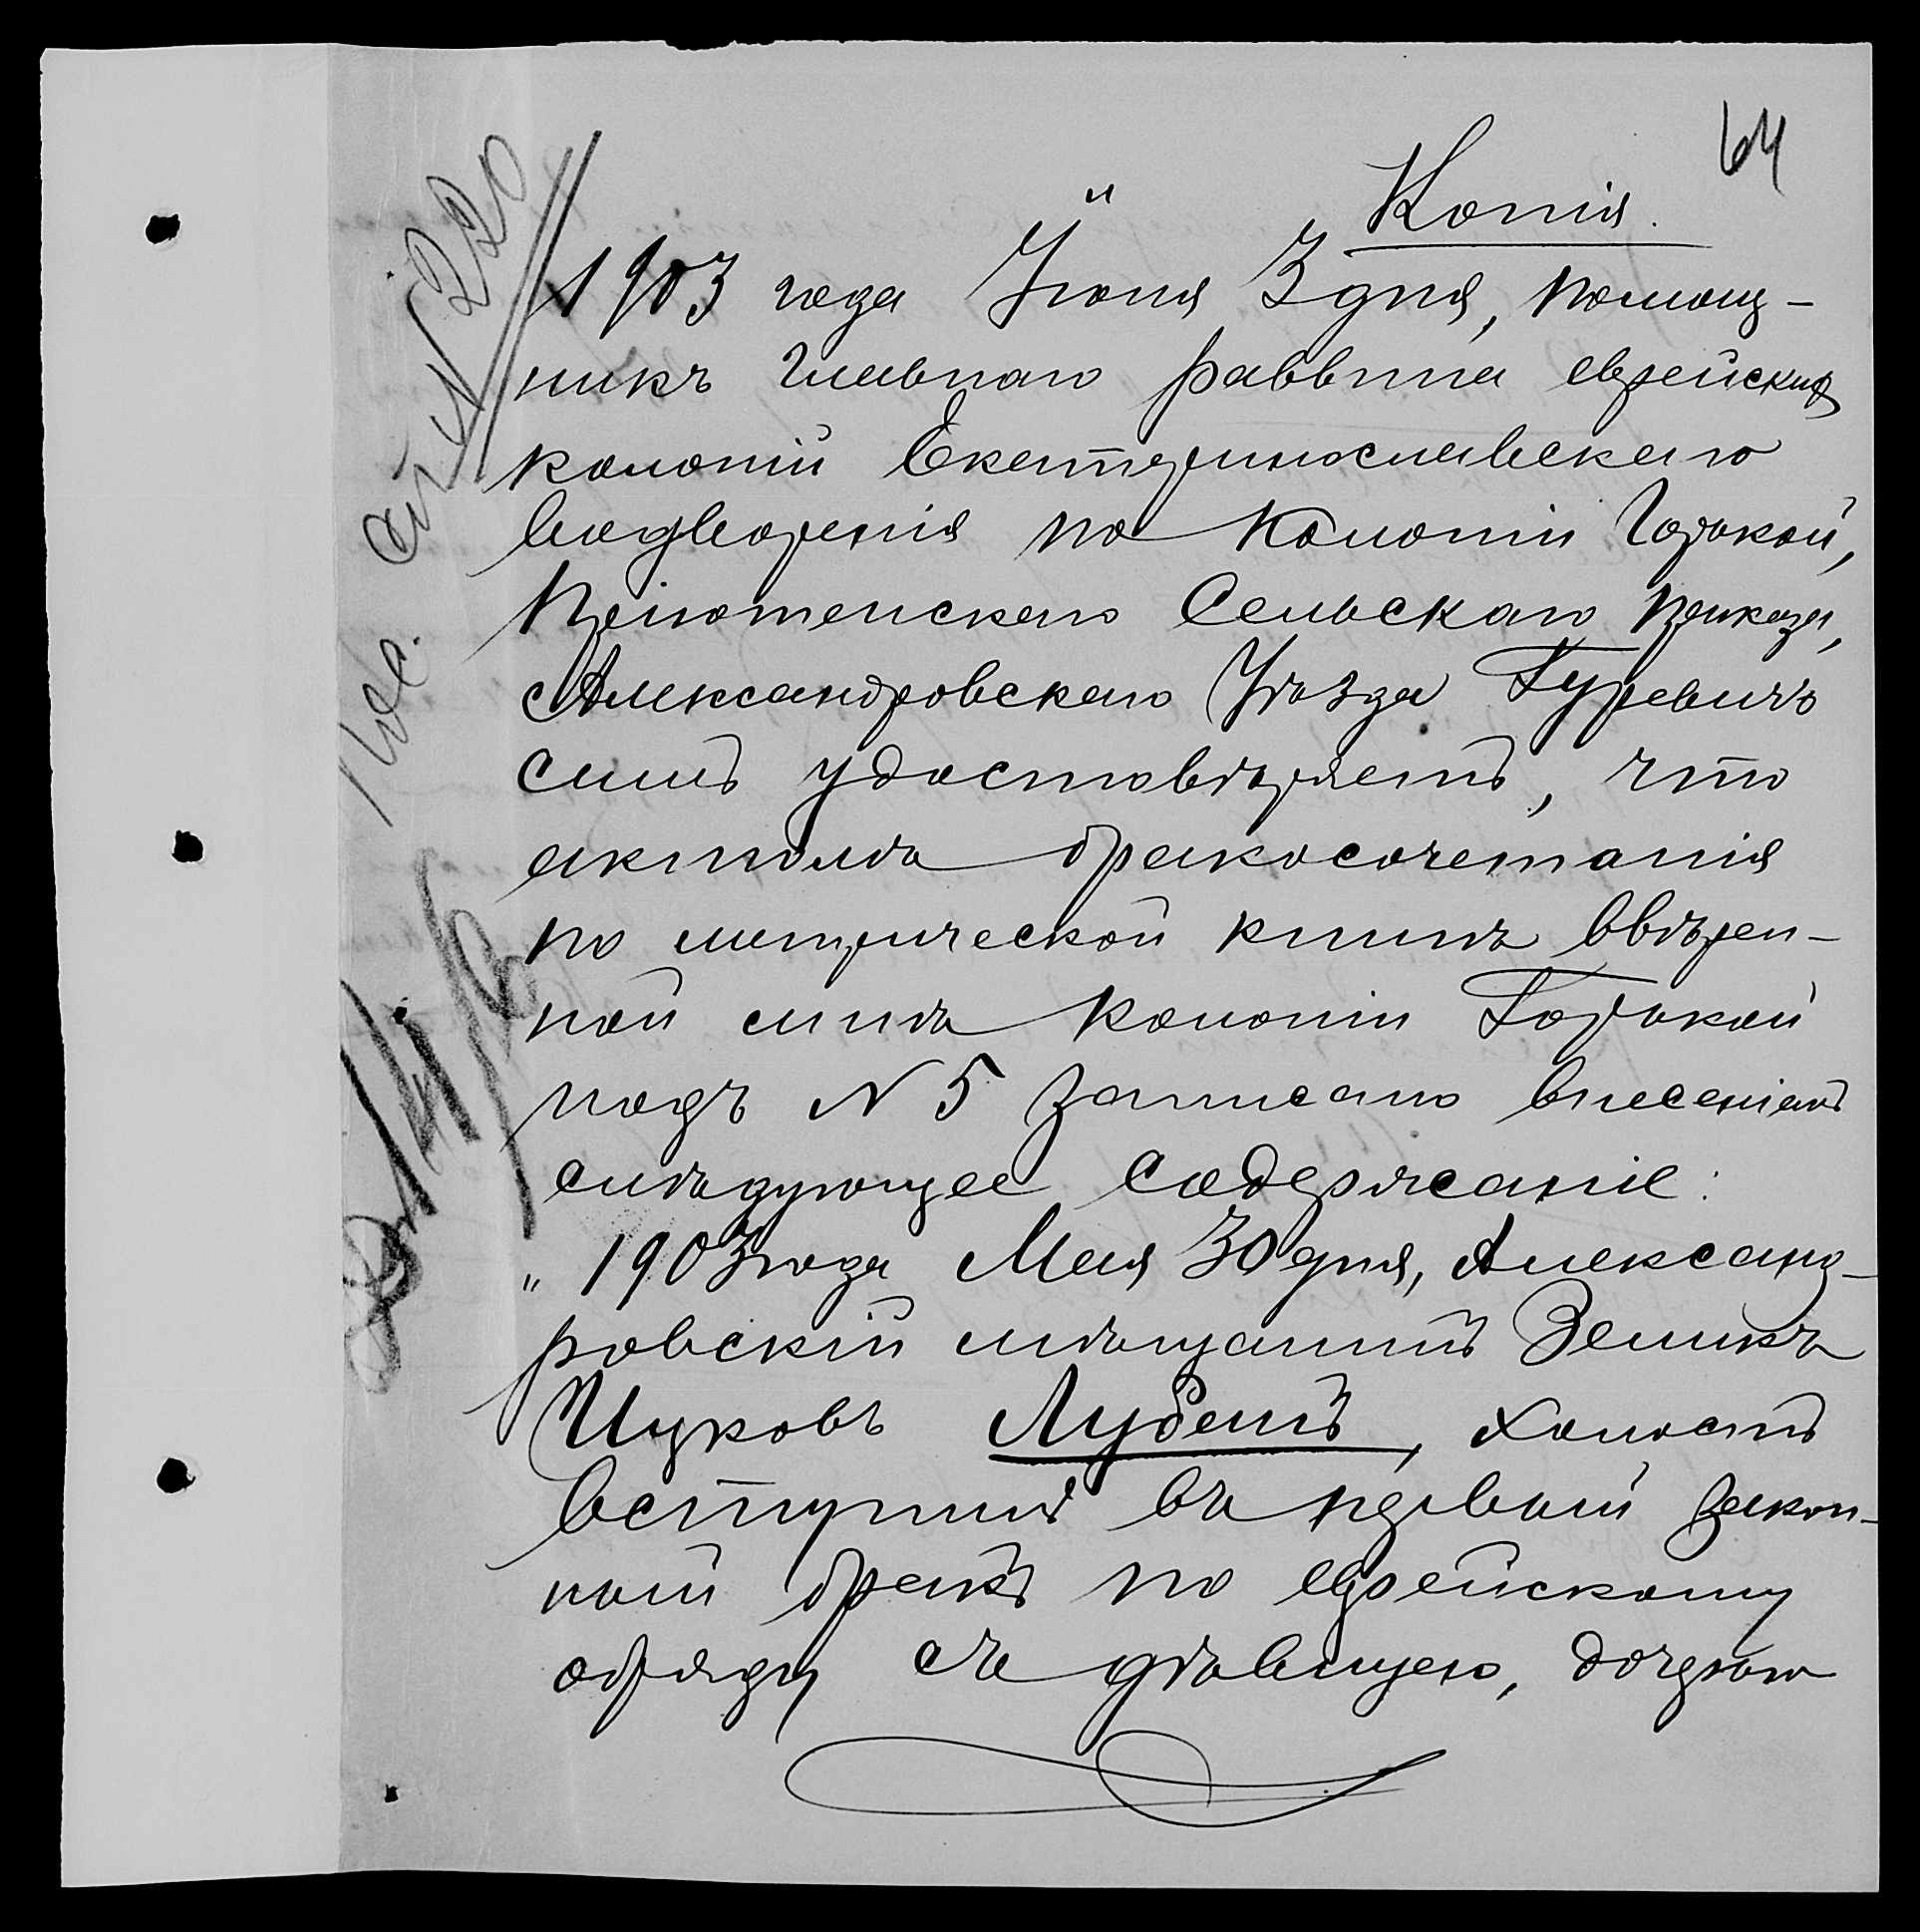 64
Копія.
1903 года Іюня 3 дня, помощ-
никъ Главнаго раввина еврейскихъ
колоній Екатеринославскаго
водворенія по колоніи Горькой,
Пріютенскаго Сельскаго приказа,
Александровскаго Уѣзда Гуревичъ
симъ удостовѣряетъ, что
актомъ бракосочетанія
по метрической книгѣ ввѣрен-
ной мнѣ колоніи Горькой
подъ N 5 записано внесеніемъ
слѣдующее содержаніе:
„1903 года Мая 30 дня, Александ-
ровскій мѣщанинъ Зеликъ
Ицковъ Лубенъ, холостъ
вступилъ въ первый закон-
ный бракъ по еврейскому
обряду съ дѣвицею, дочерью
N 220